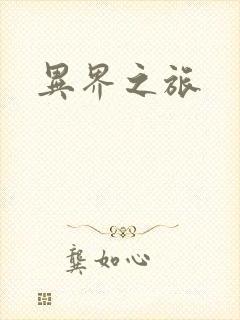 異界之旅
龔如心